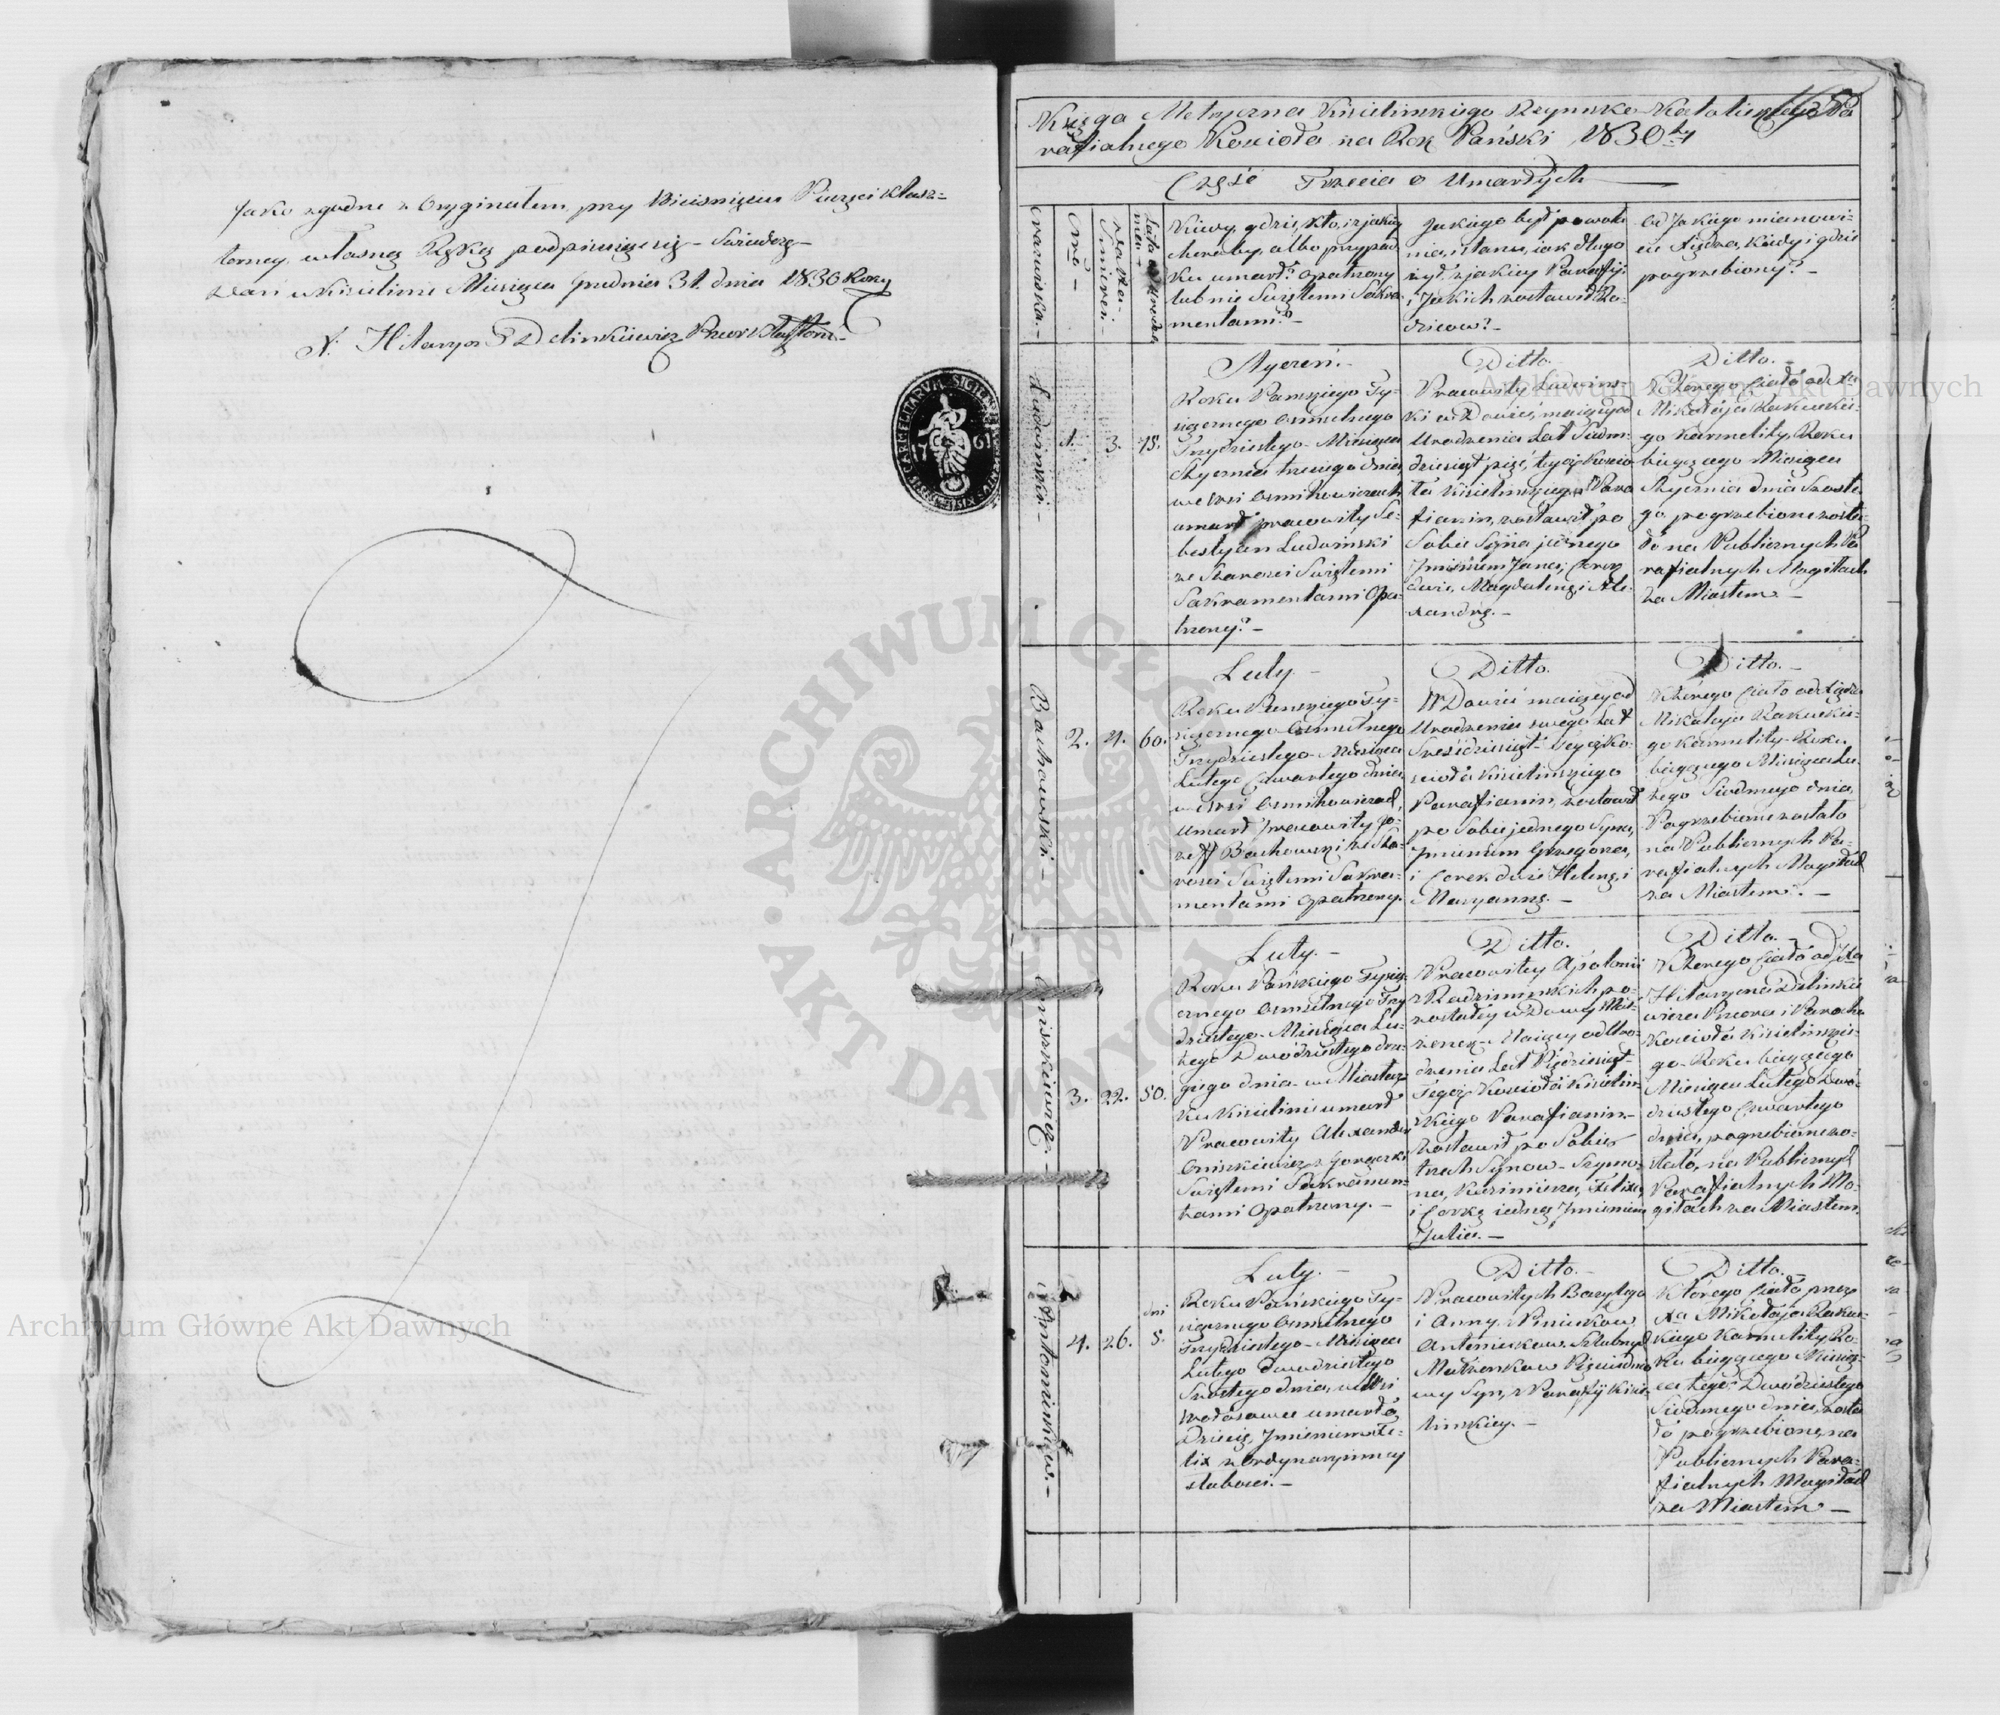 Jako zgodne z Oryginałem, przy wiciśnięciu Pieczęci Klasz-
torney, własną Ręką podpisuię się – Świadczę –
Dan w Kisielinie Miesiąca Grudnia 31. dnia 1830 Roku
X. Hilaryon Delinkiewicz Przeor
Księga Metryczna Kisielinskiego Rzymsko Katolickiego Pa
rafialnego Kościoła na Rok Pański 1830ty
Część Trzecia o Umarłych
Nazwiska.–
Kiedy, gdzie, kto, z jakiey
choroby, albo przypad
ku umarł? opatrzony
lub nie Świętemi Sakra
mentami?–
Jakiego był powoła
nia, i stanu, iak długo
żył, z jakiey Parafij,
i Jakich zostawił Ro-
dzicow?–
od Jakiego mianowi-
cie Xiędza, kiedy i gdzie
pogrzebiony?–
Ludwinski.–
1.
3.
75.
Styczeń.–
Roku Panskiego Ty-
siącznego Osmsetnego
Trzydziestego – Miesiąca
Stycznia trzeciego dnia
we Wsi Osmihowiczach
umarł pracowity Se-
bestyan Ludwinski
ze Starosci Swiętemi
Sakramentami Opa-
trzony.–
Ditto.
Pracowity Ludwins-
ki w Dowie, maiący od
Urodzenia Lat Siedm-
dziesiąt pięć, tegoż Koscio
ła Kisielinskiego Para
fianin, zostawił po
Sobie Syna jednego
Imieniem Jana, i Corek
dwie, Magdalenę i Ale-
xandrę.–
Ditto.–
Którego Ciało od Xa
Mikołaja Rakuckie-
go Karmelity, Roku
bieżącego Miesiąca
Stycznia dnia Szoste
go pogrzebione zosta-
ło na Publicznych Pa
rafialnych Mogiłach
za Miastem.–
Bachowski.–
2.
4.
60.
Luty.–
Roku Panskiego Ty-
siącznego Osmsetnego
Trzydziestego – Miesiąca
Lutego Czwartego dnia,
we Wsi Osmihowiczach,
umarł pracowity Jo-
zeff Bachowski ze Sta-
rosci Swiętemi Sakra-
mentami Opatrzony.
Ditto.
W Dowie maiący od
Urodzenia swego Lat
Szescdziesiąt – tegoż Ko-
scioła Kisielinskiego
Parafianin, zostawił
po Sobie jednego Syna,
Imieniem Grzegorza,
i Corek dwie Helenę i
Maryannę.–
Ditto.–
Którego Ciało od Xiędza
Mikołaja Rakuckie-
go Karmelity – Roku
bieżącego Miesiąca Lu-
tego Siódmego dnia,
Pogrzebione zostało
na Publicznych Pa-
rafialnych Mogiłach
za Miastem.–
Oniszkiewicz.–
3.
22.
50.
Luty.–
Roku Pańskiego Tysią-
cznego Osmsetnego Trzy
dziestego – Miesiąca Lu-
tego Dwódziestego dru-
giego dnia – w Miastecz-
ku Kisielinie umarł
Pracowity Alexander
Oniszkiewicz z Gorączki
Swiętemi Sakramen-
tami Opatrzony.–
Ditto.
Pracowitey Apolonii
z Radziminskich po-
zostałey w Dowy Mał-
żonek – Maiący od Uro-
dzenia Lat Pięcdziesiąt –
Tegoż Koscioła Kisielin-
skiego Parafianin –
Zostawił po Sobie
trzech Synow – Szymo-
na, Kazimierza, Felixa,
i Corkę iedną Imieniem
Julia.–
Ditto.–
Którego Ciało od Xa
Hilaryona Delinkie
wicza Przeora i Parocha
Koscioła Kisielinskie-
go – Roku bieżącego
Miesiąca Lutego Dwó-
dziestego Czwartego
dnia, pogrzebione zo-
stało, na Publicznych
Parafialnych Mo-
giłach za Miastem.
Antoniuków.–
4.
26.
dni
5.
Luty.–
Roku Pańskiego Ty-
siącznego Osmsetnego
Trzydziestego – Miesiąca
Lutego dwudziestego
Szostego dnia, w Wsi
umarło
Dziecię, Imieniem Fe-
lix z ordynaryinney
słabosci.–
Ditto.–
Pracowitych Bazylego
i Anny z
Antoniukow Slubnych
Małżonkow
wy Syn, z Parafij Kisie-
linskiey.–
Ditto.–
Którego Ciało przez
Xa Mikołaja Rakuc-
kiego Karmelitę Ro-
ku bieżącego Miesią-
ca tego Dwódziestego
Siódmego dnia, zosta
ło pogrzebione, na
Publicznych Para-
fialnych Mogiłach
za Miastem.–
Archiwum Główne Akt Dawnych
Archiwum Główne Akt Dawnych
ARCHIWUM GŁÓWNE AKT DAWNYCH